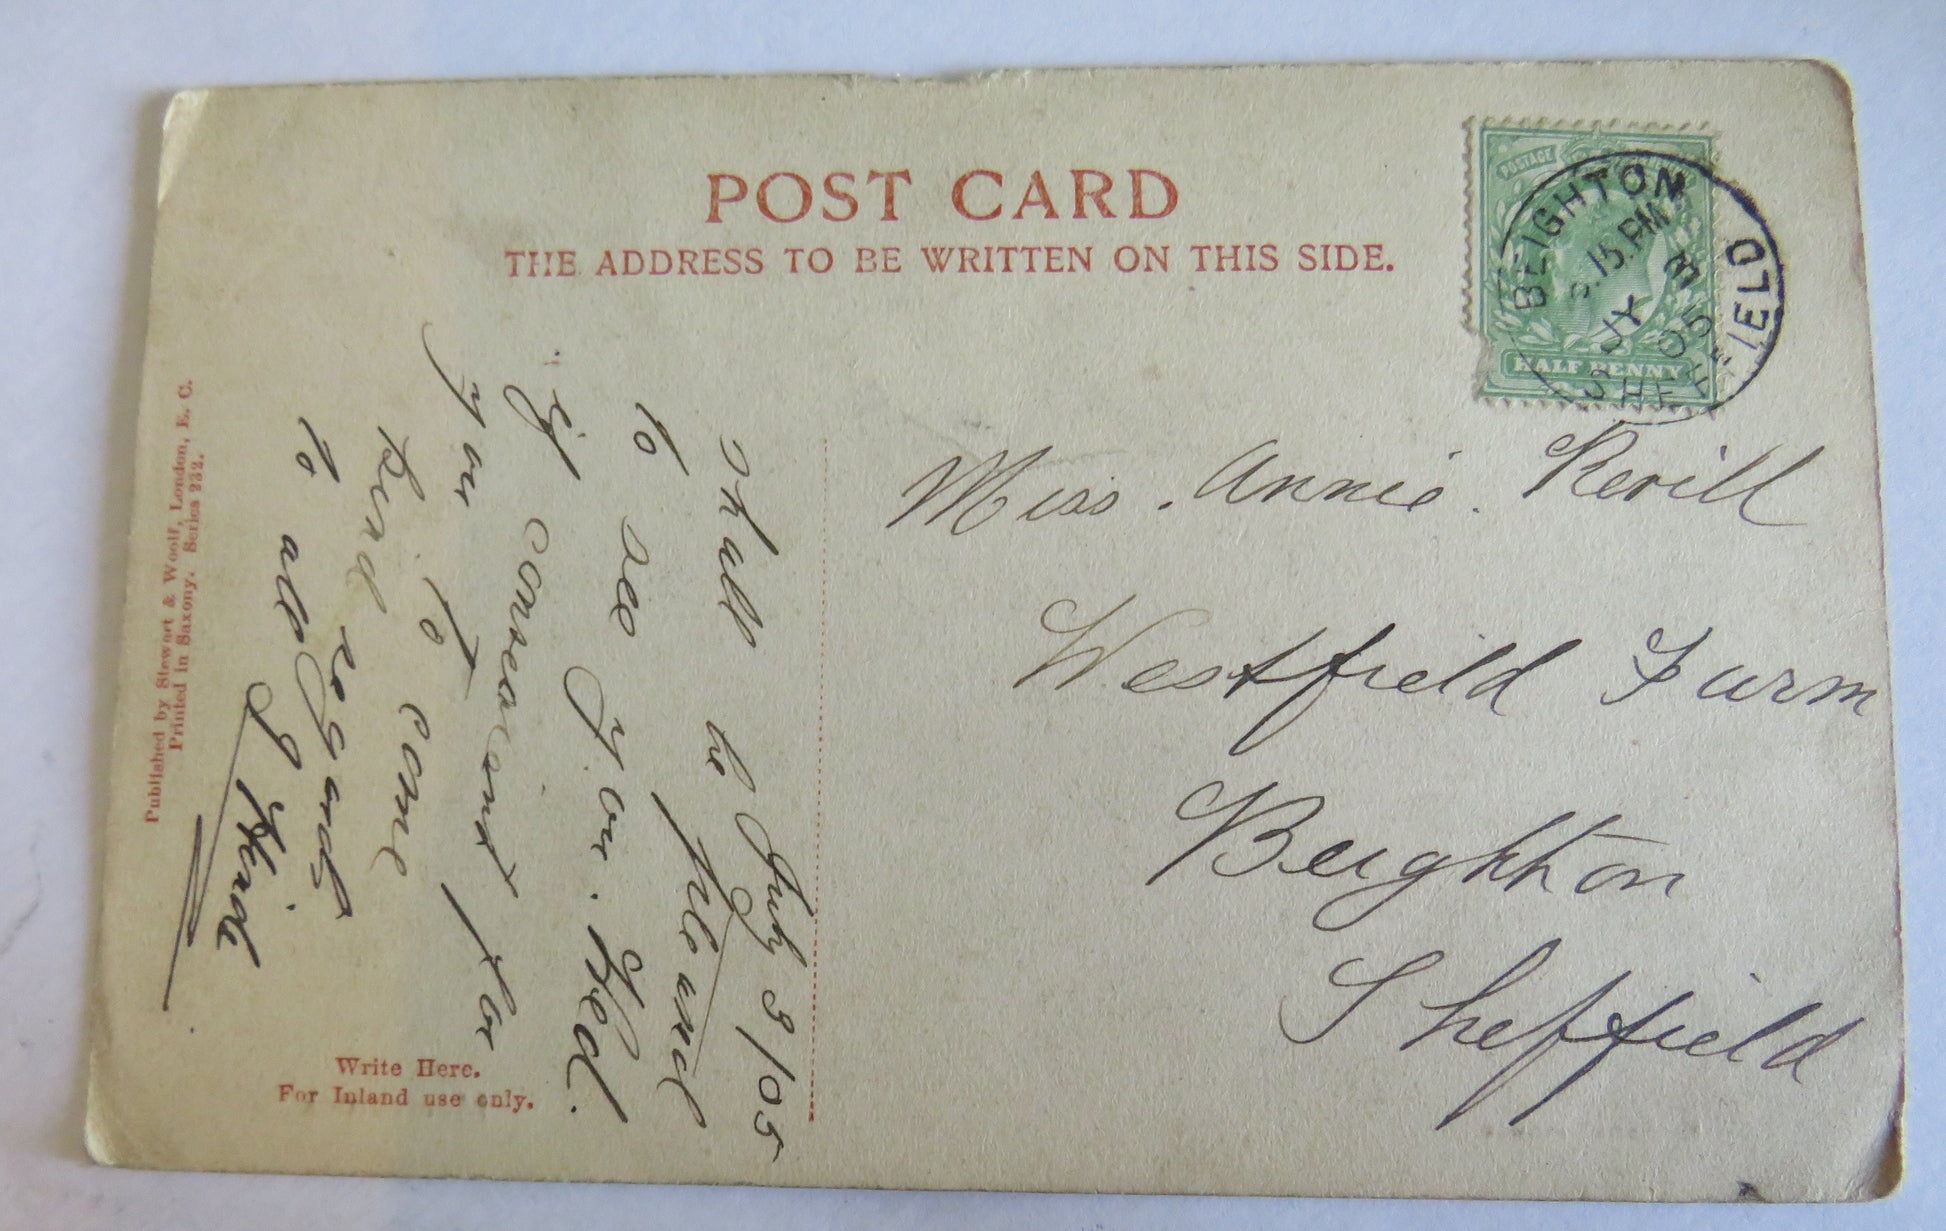 POST CARD
THE ADDRESS TO BE WRITTEN ON THIS SIDE.
POSTAGE
HALF PENNY
BEIGHTON
SHEFFIELD
.15.PM
JY 3
05
Miss. Annie. Revill
Westfield Farm
Beighton
Sheffield
July 3/05
Shall be pleased
to see you. Wed.
if convenient for
you to come
kind regards
to all
Published by Stewart & Woolf, London, E. C.
Printed in Saxony. Series 232.
Write Here.
For Inland use only.